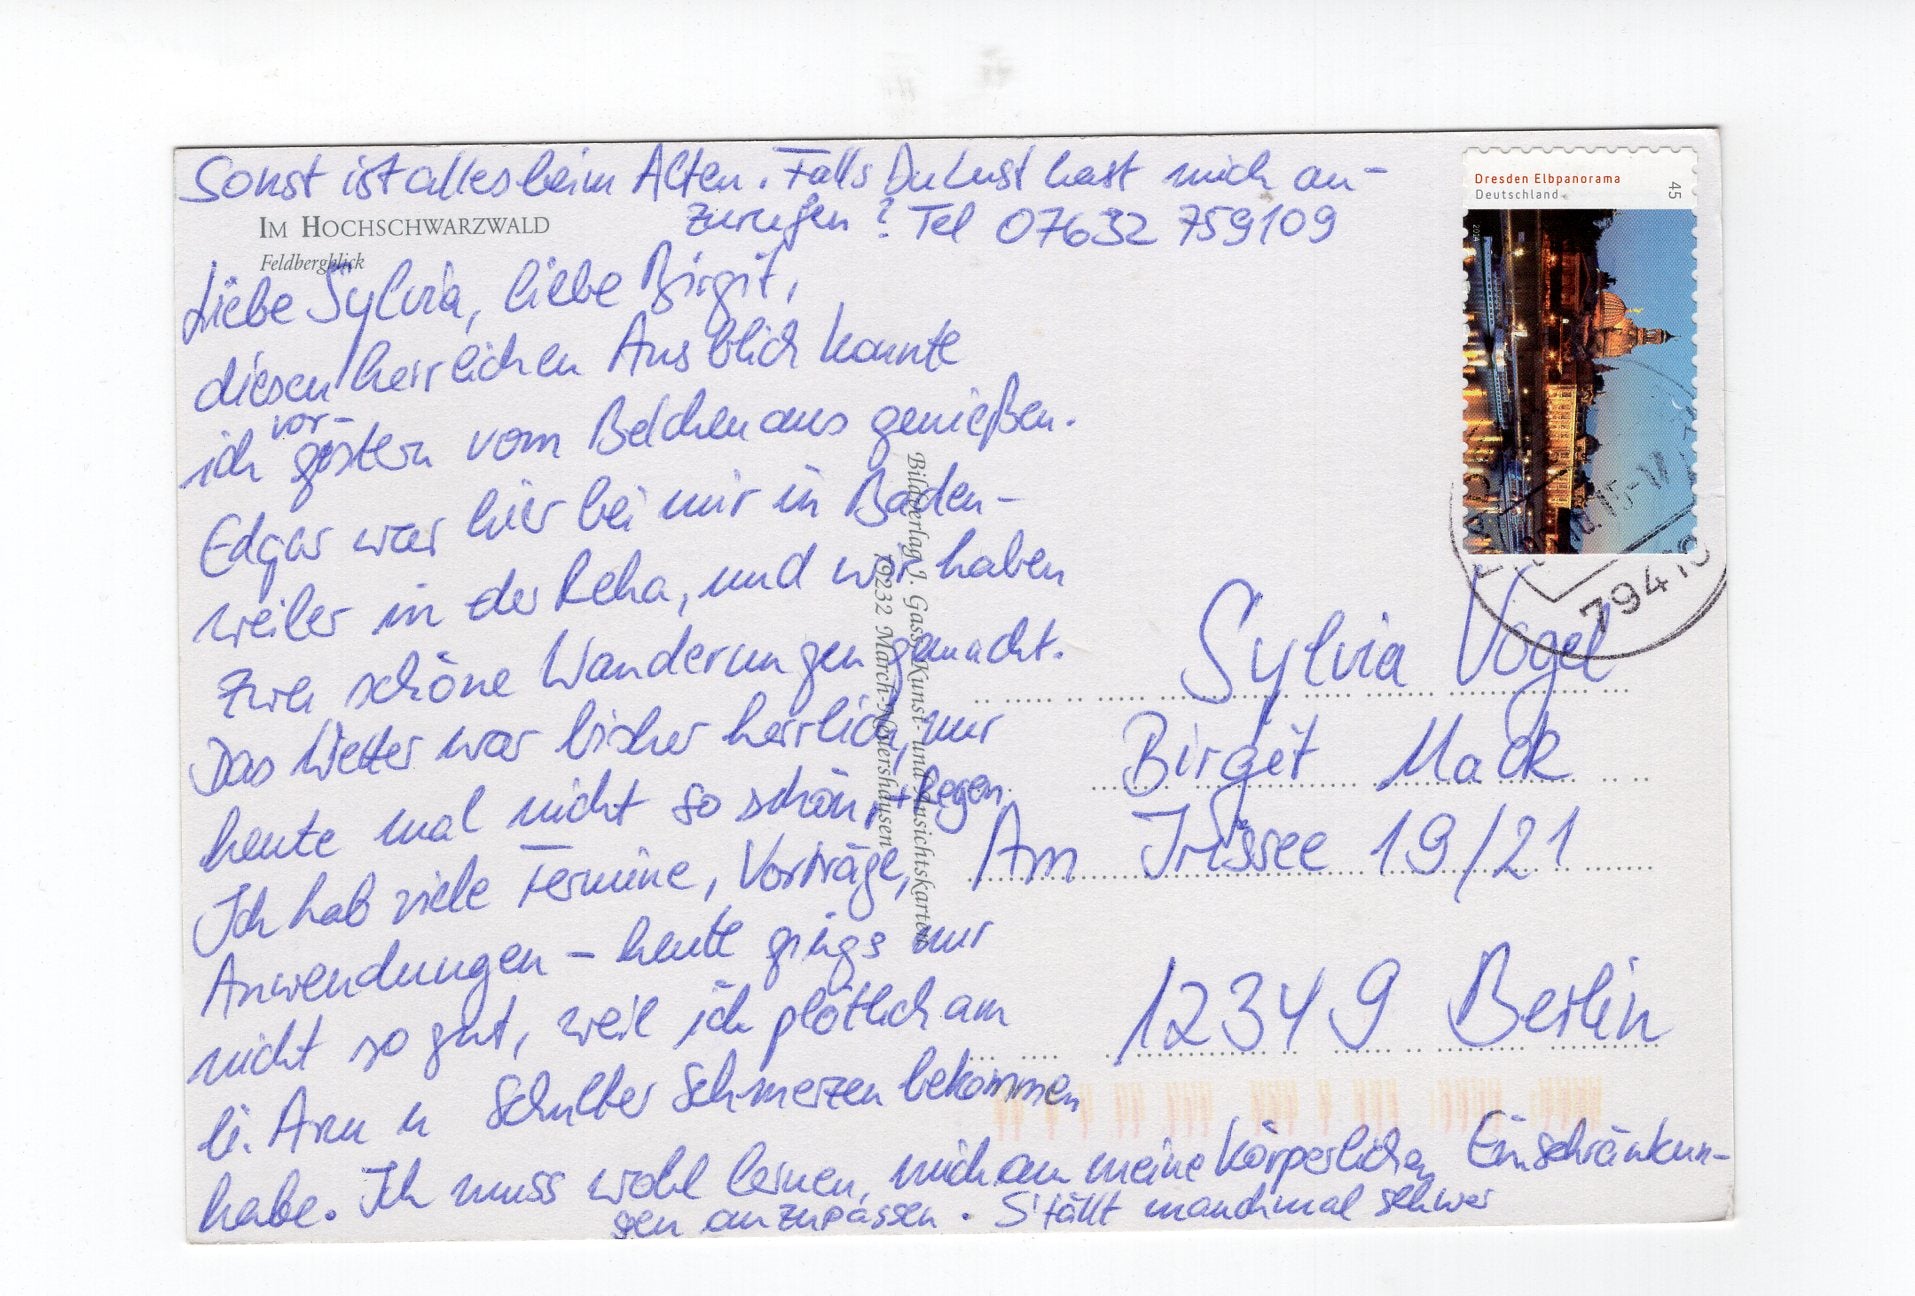 Sonst ist alles beim Alten. Falls Du Lust hast mich an-
zurufen? Tel 07632 759109
IM HOCHSCHWARZWALD
Feldbergblick
Liebe Sylvia, liebe Birgit,
diesen herrlichen Ausblick konnte
ich vor-gestern vom Belchen aus genießen.
Edgar war hier bei mir in Baden-
weiler in der Reha, und wir haben
zwei schöne Wanderungen gemacht.
Das Wetter war bisher herrlich, nur
heute mal nicht so schön, + Regen
Ich hab viele Termine, Vorträge,
Anwendungen – heute gings nur
nicht so gut, weil ich plötlich am
li. Arm u Schulter Schmerzen bekommen
habe. Ich muss wohl lernen, mich an meine körperlichen Einschränkun-
gen anzupassen. S'fällt manchmal schwer
Bildverlag J. Gass · Kunst- und Ansichtskarten
79232 March-Neuershausen
Dresden Elbpanorama
Deutschland
45
2014
15-1
7941
Sylvia Vogel
Birgit Mack
Am Irissee 19/21
12349 Berlin